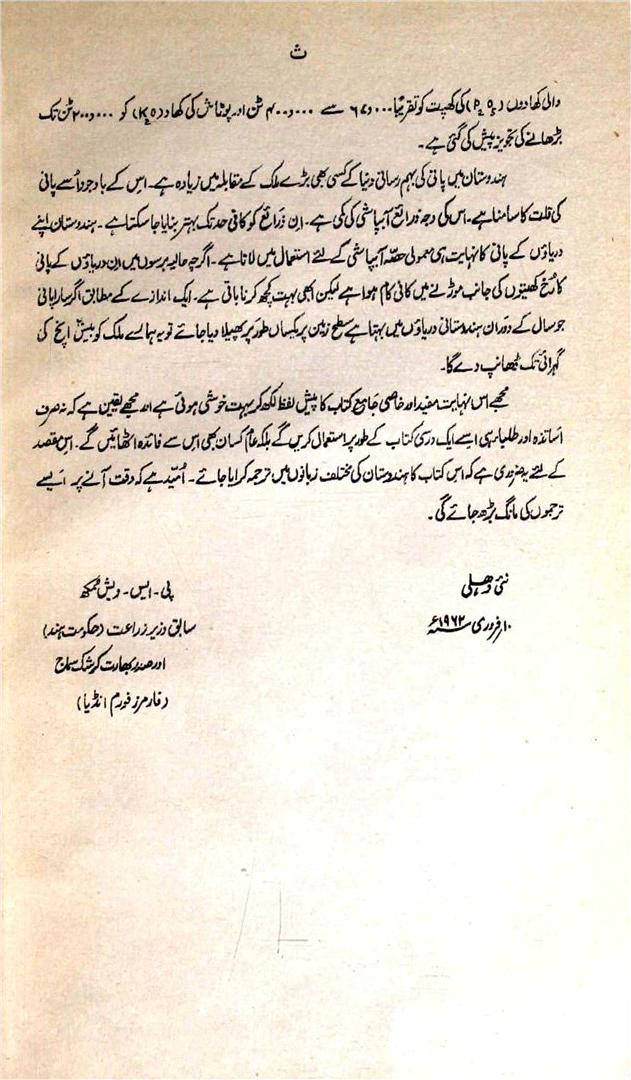 ث
والی کھادوں (P₂O₅) کی کھپت کو تقریباً ۶۷۰۰۰ سے ۴۰۰۰۰۰ ٹن اور پوٹاش کی کھاد (K₂O) کو ۲۰۰۰۰۰ ٹن تک
بڑھانے کی تجویز پیش کی گئی ہے۔
ہندوستان میں پانی کی بہم رسانی دنیا کے کسی بھی بڑے ملک کے مقابلہ میں زیادہ ہے۔ اس کے باوجود اُسے پانی
کی قلت کا سامنا ہے۔ اس کی وجہ ذرائع آبپاشی کی کمی ہے۔ اِن ذرائع کو کافی حد تک بہتر بنایا جا سکتا ہے۔ ہندوستان اپنے
دریاؤں کے پانی کا نہایت ہی معمولی حصّہ آبپاشی کے لئے استعمال میں لاتا ہے۔ اگرچہ حالیہ برسوں میں اِن دریاؤں کے پانی
کا رُخ کھیتوں کی جانب موڑنے میں کافی کام ہوا ہے لیکن ابھی بہت کچھ کرنا باقی ہے۔ ایک اندازے کے مطابق اگر سارا پانی
جو سال کے دَوران ہندوستانی دریاؤں میں بہتا ہے سطح زمین پر یکساں طور پر پھیلا دیا جائے تو یہ ہمارے ملک کو بیس انچ کی
گہرائی تک ڈھانپ دے گا۔
مجھے اس نہایت مفید اور خاصی جامع کتاب کا پیش لفظ لکھ کر بہت خوشی ہوئی ہے اور مجھے یقین ہے کہ نہ صرف
اساتذہ اور طلبا ہی اسے ایک درسی کتاب کے طور پر استعمال کریں گے بلکہ عام کسان بھی اس سے فائدہ اٹھائیں گے۔ اِس مقصد
کے لئے یہ ضروری ہے کہ اس کتاب کا ہندوستان کی مختلف زبانوں میں ترجمہ کرایا جائے۔ اُمید ہے کہ وقت آنے پر ایسے
ترجموں کی مانگ بڑھ جائے گی۔
نئی دہلی
۱۰ فروری ۱۹۶۲ء
پی۔ ایس۔ دیش مُکھ
سابق وزیر زراعت (حکومت ہند)
اور صدر بھارت کرشک سماج
(فارمرز فورم انڈیا)